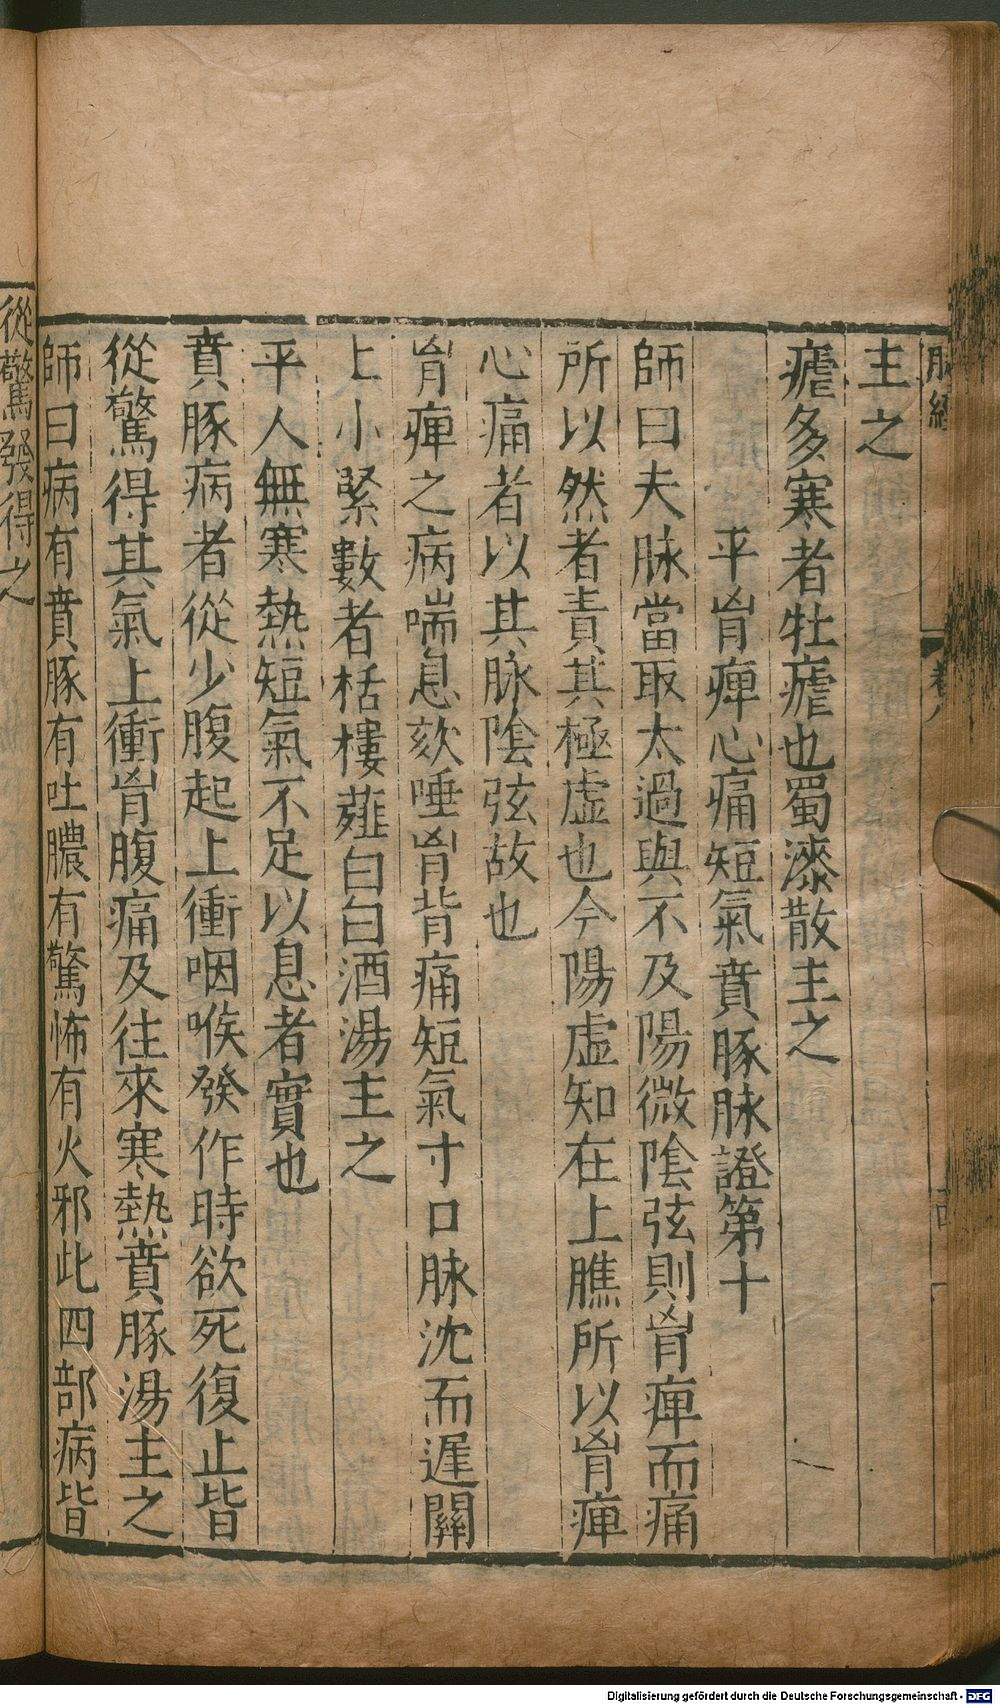 脉經
卷八
主之
瘧多寒者牡瘧也蜀漆散主之
平胷痺心痛短氣賁豚脉證第十
師曰夫脉當取太過與不及陽微陰弦則胷痺而痛
所以然者責其極虛也今陽虛知在上膲所以胷痺
心痛者以其脉陰弦故也
胷痺之病喘息欬唾胷背痛短氣寸口脉沈而遲關
上小緊數者栝樓薤白白酒湯主之
平人無寒熱短氣不足以息者實也
賁豚病者從少腹起上衝咽喉發作時欲死復止皆
從驚得其氣上衝胷腹痛及往來寒熱賁豚湯主之
師曰病有賁豚有吐膿有驚怖有火邪此四部病皆
從驚發得之
Digitalisierung gefördert durch die Deutsche Forschungsgemeinschaft - DFG